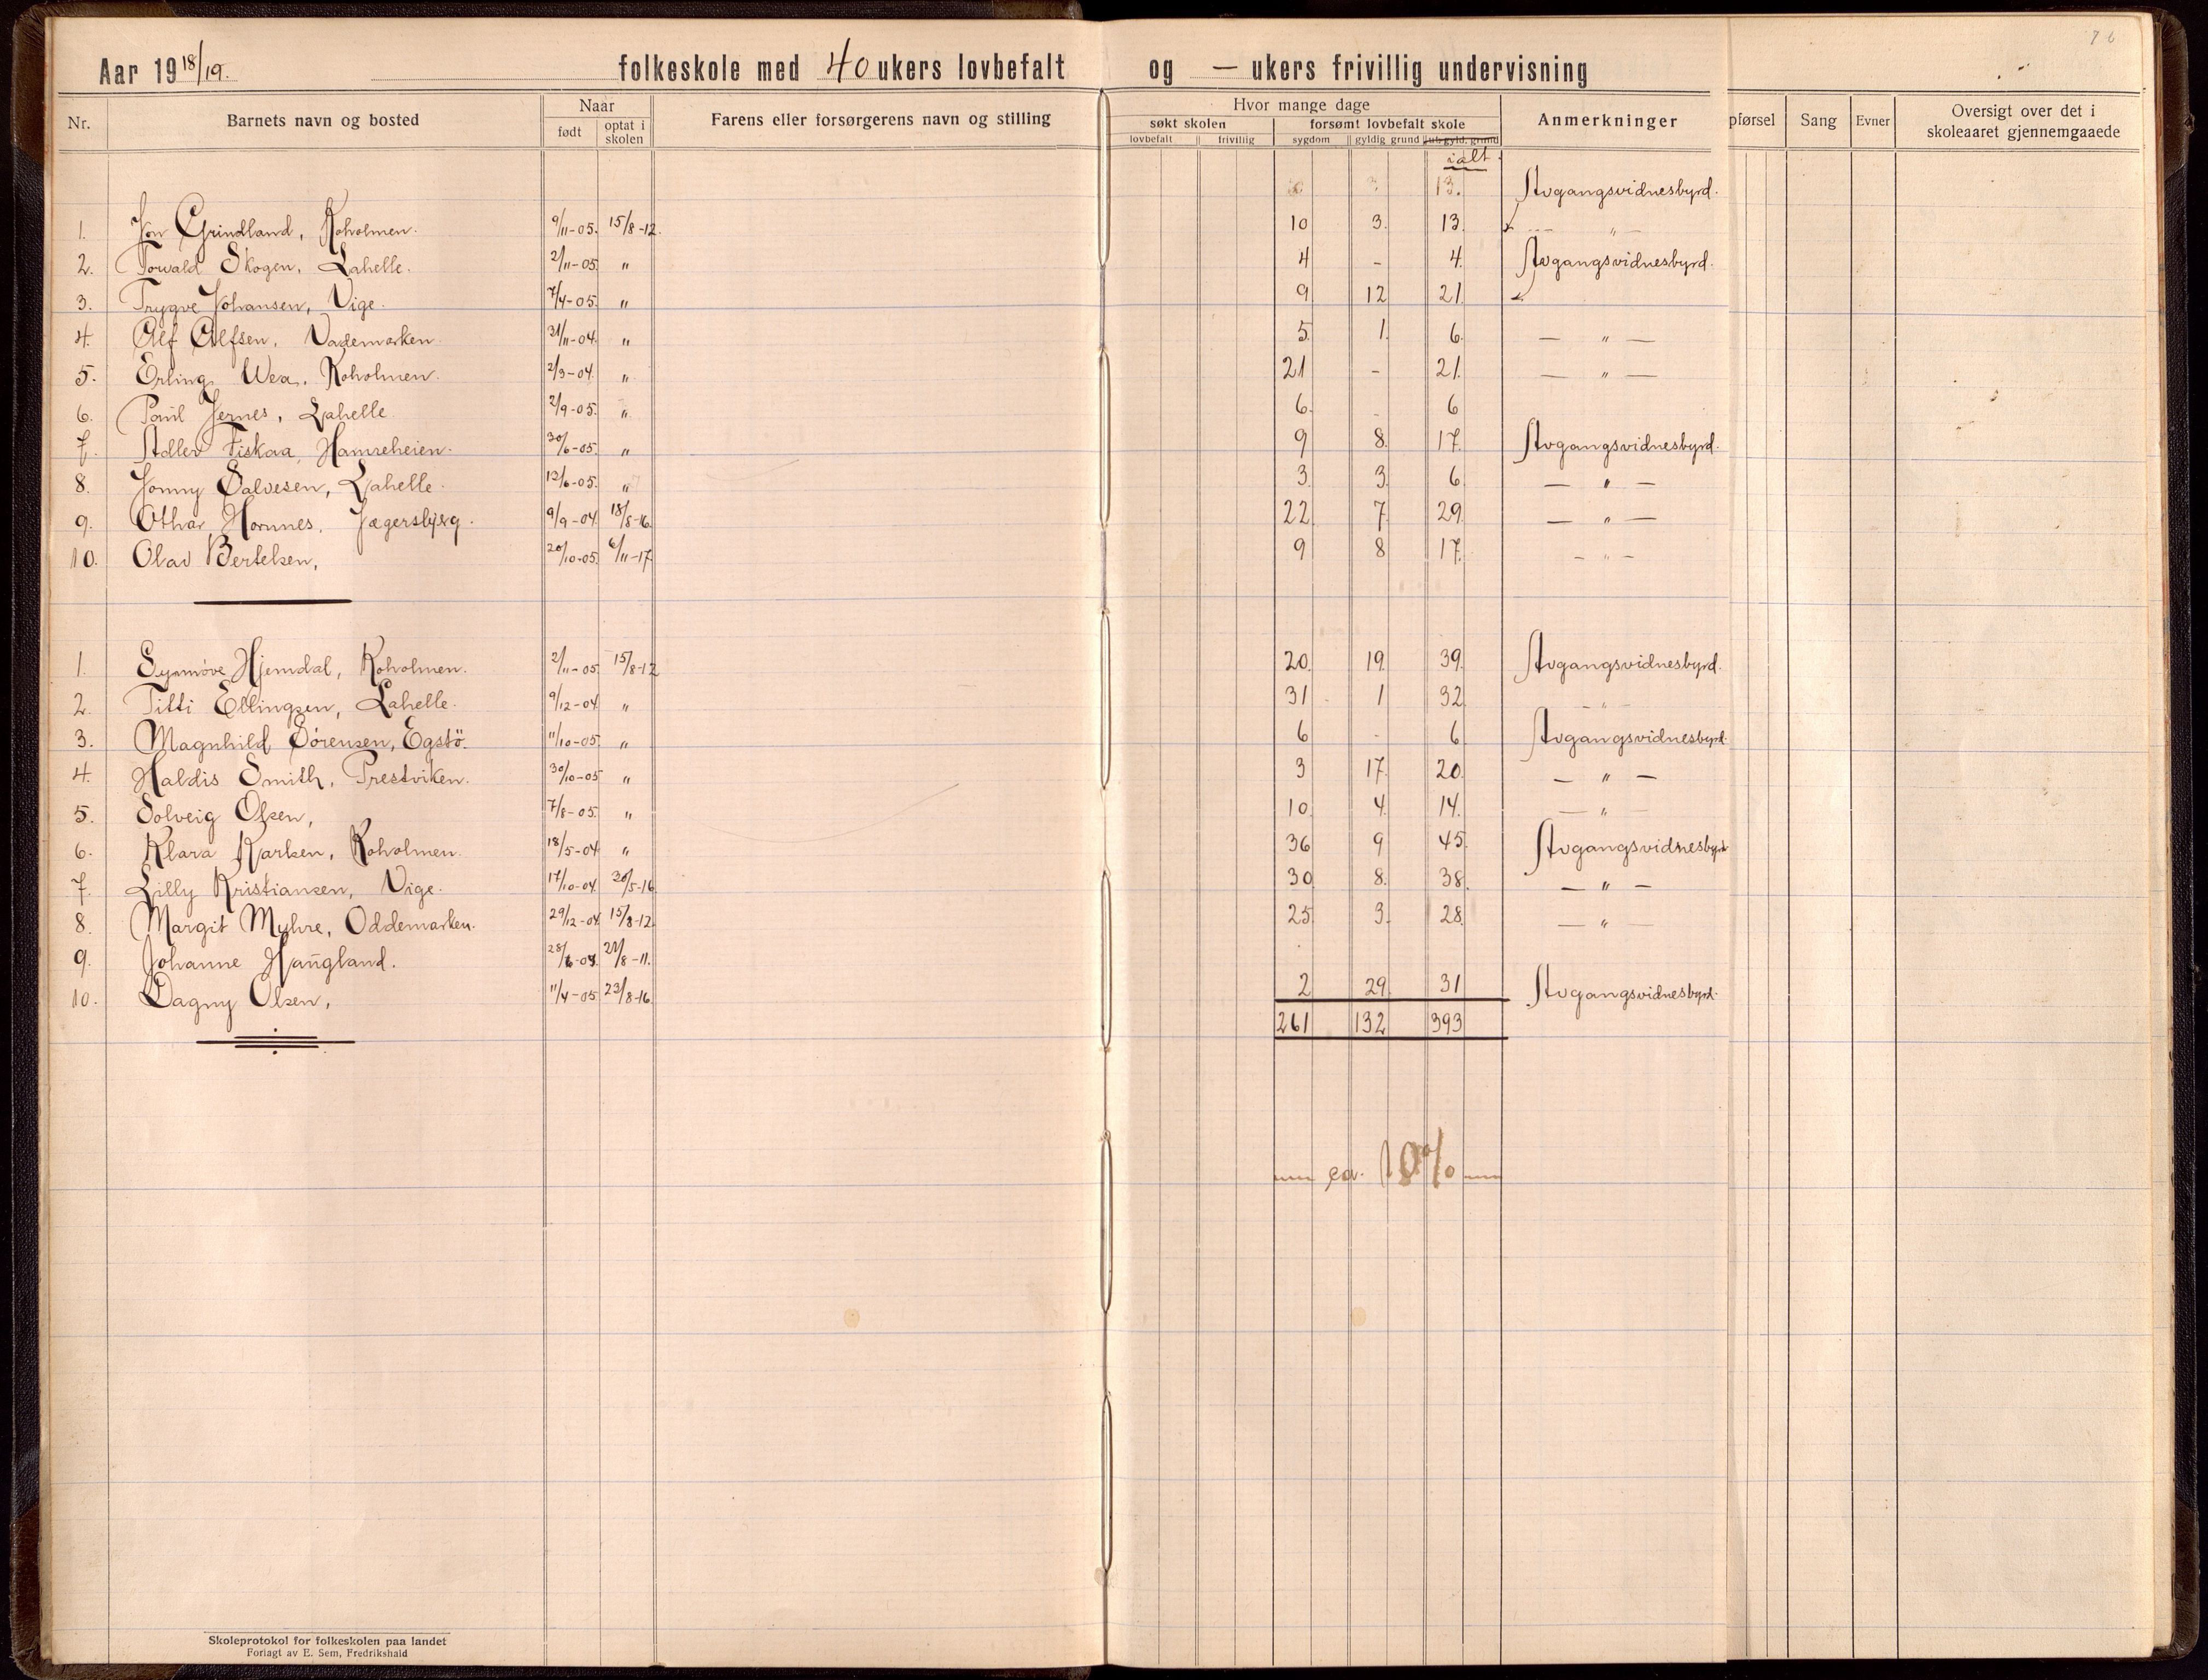 76
Aar 1918/19. folkeskole med 40 ukers lovbefalt og — ukers frivillig undervisning
Nr. Barnets navn og bosted Naar født optat i skolen Farens eller forsørgerens navn og stilling Hvor mange dage søkt skolen lovbefalt frivillig forsømt lovbefalt skole sygdom gyldig grund ialt Anmerkninger pførsel Sang Evner Oversigt over det i skoleaaret gjennemgaaede
13. Avgangsvidnesbyrd.
1. Jon Grindland, Roholmen. 9/11-05. 15/8-12. 10 3. 13. — " —
2. Torvald Skogen, Lahelle. 2/11-05. " 4 - 4. Avgangsvidnesbyrd.
3. Trygve Johansen, Vige. 7/4-05. " 9 12 21.
4. Alf Alfsen, Vademarken. 31/11-04. " 5. 1. 6. — " —
5. Erling Wea, Roholmen. 2/3-04. " 21 - 21. — " —
6. Paul Jernes, Lahelle. 2/9-05. " 6. - 6
7. Adler Fiskaa, Hamreheien. 30/6-05. " 9 8. 17. Avgangsvidnesbyrd.
8. Jonny Salvesen, Lahelle. 13/6-05. " 3. 3. 6 — " —
9. Othar Hornnes, Jægersbjerg. 9/9-04. 18/8-16. 22 7 29 — " —
10. Olav Bertelsen, 20/10-05. 6/11-17. 9 8 17. — " —
1. Synnöve Hjemdal, Roholmen. 2/11-05. 15/8-12 20. 19. 39. Avgangsvidnesbyrd.
2. Titti Ellingsen, Lahelle. 9/12-04. " 31 1 32 — " —
3. Magnhild Sörensen, Egstö. 11/10-05. " 6 - 6. Avgangsvidnesbyrd.
4. Haldis Smith, Prestviken. 30/10-05 " 3 17. 20. — " —
5. Solveig Olsen, 7/8-05. " 10. 4. 14. — " —
6. Klara Karlsen, Roholmen. 18/5-04. " 36 9 45. Avgangsvidnesbyrd
7. Lilly Kristiansen, Vige. 17/10-04. 30/5-16. 30. 8. 38. — " —
8. Margit Myhre, Oddemarken. 29/12-04. 15/8-12. 25 3. 28. — " —
9. Johanne Haugland. 28/6-04. 21/8-11.
10. Dagny Olsen, 11/4-05. 23/8-16. 2 29 31 Avgangsvidnesbyrd.
261 132 393
ca. 10%
Skoleprotokol for folkeskolen paa landet
Forlagt av E. Sem, Fredrikshald